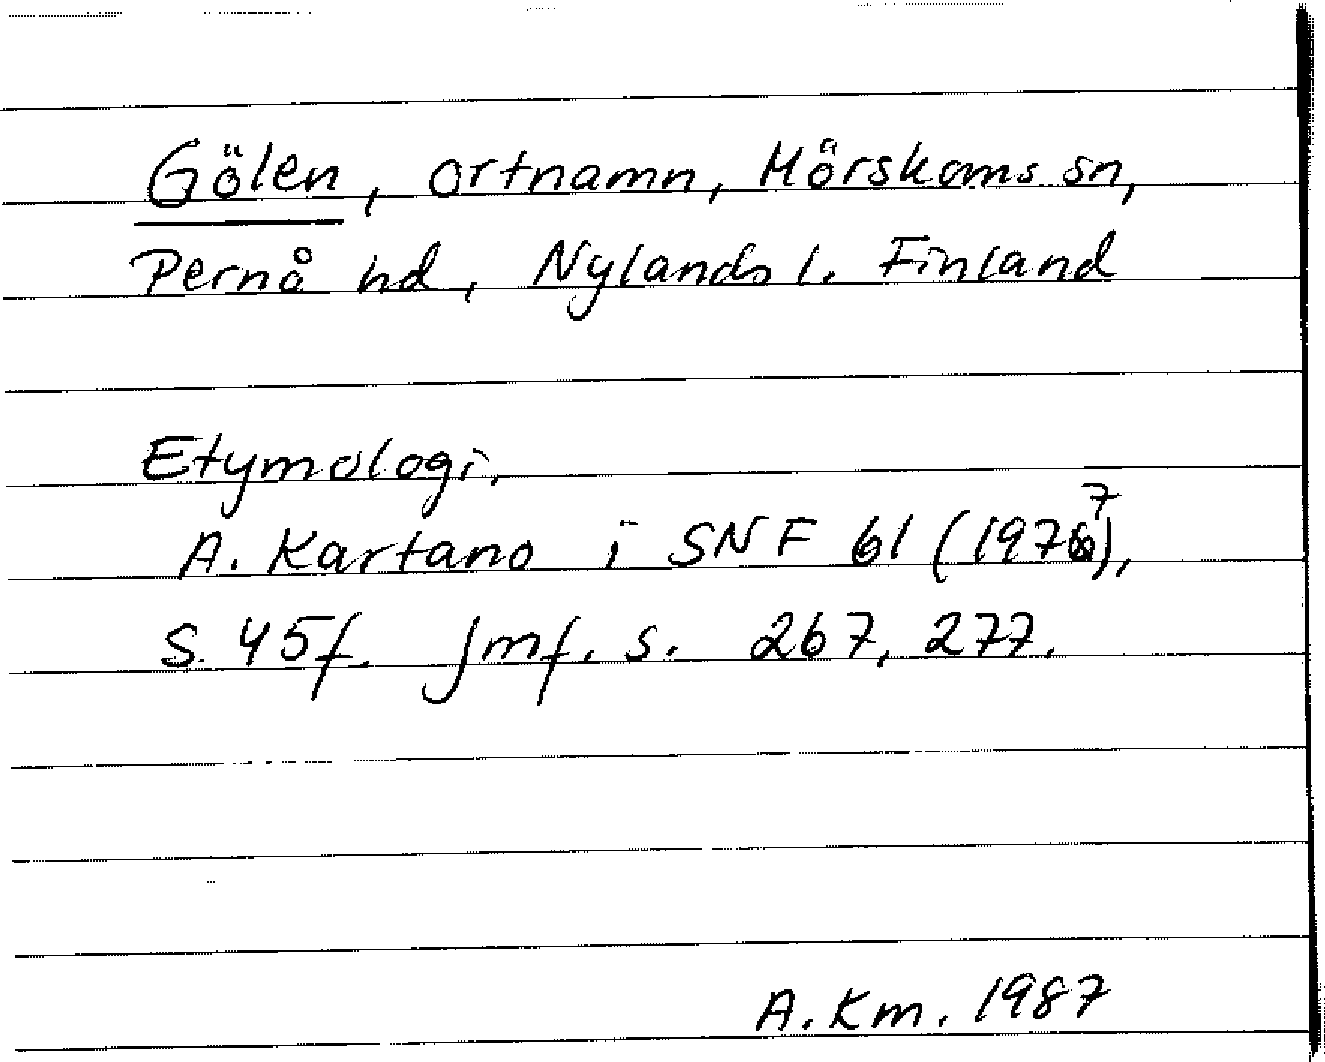 Gölen, ortnamn, Mörskoms sn,
Pernå hd, Nylands l. Finland
Etymologi.
A. Kartano i SNF 61 (1977),
s. 45f. Jmf. s. 267, 277.
A. Km. 1987